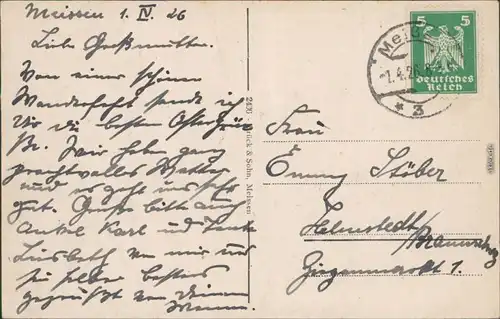 Meissen 1. IV. 26
Liebe Großmutter.
Von einer schönen
Wanderfahrt sende ich
Dir die besten Ostergrüs-
se. Wir haben ganz
prachtvolles Wetter
und es geht uns sehr
gut. Grüße bitte auch
Onkel Karl und Tante
Liesbeth von mir und
sei selber bestens
gegrüßt von Deinem
2430 Brück & Sohn, Meissen
5 5
Deutsches
Reich
1.4.26
* 2
Frau
Emmy Stöber
Helmstedt/Braunschwg
Ziegenmarkt 1.